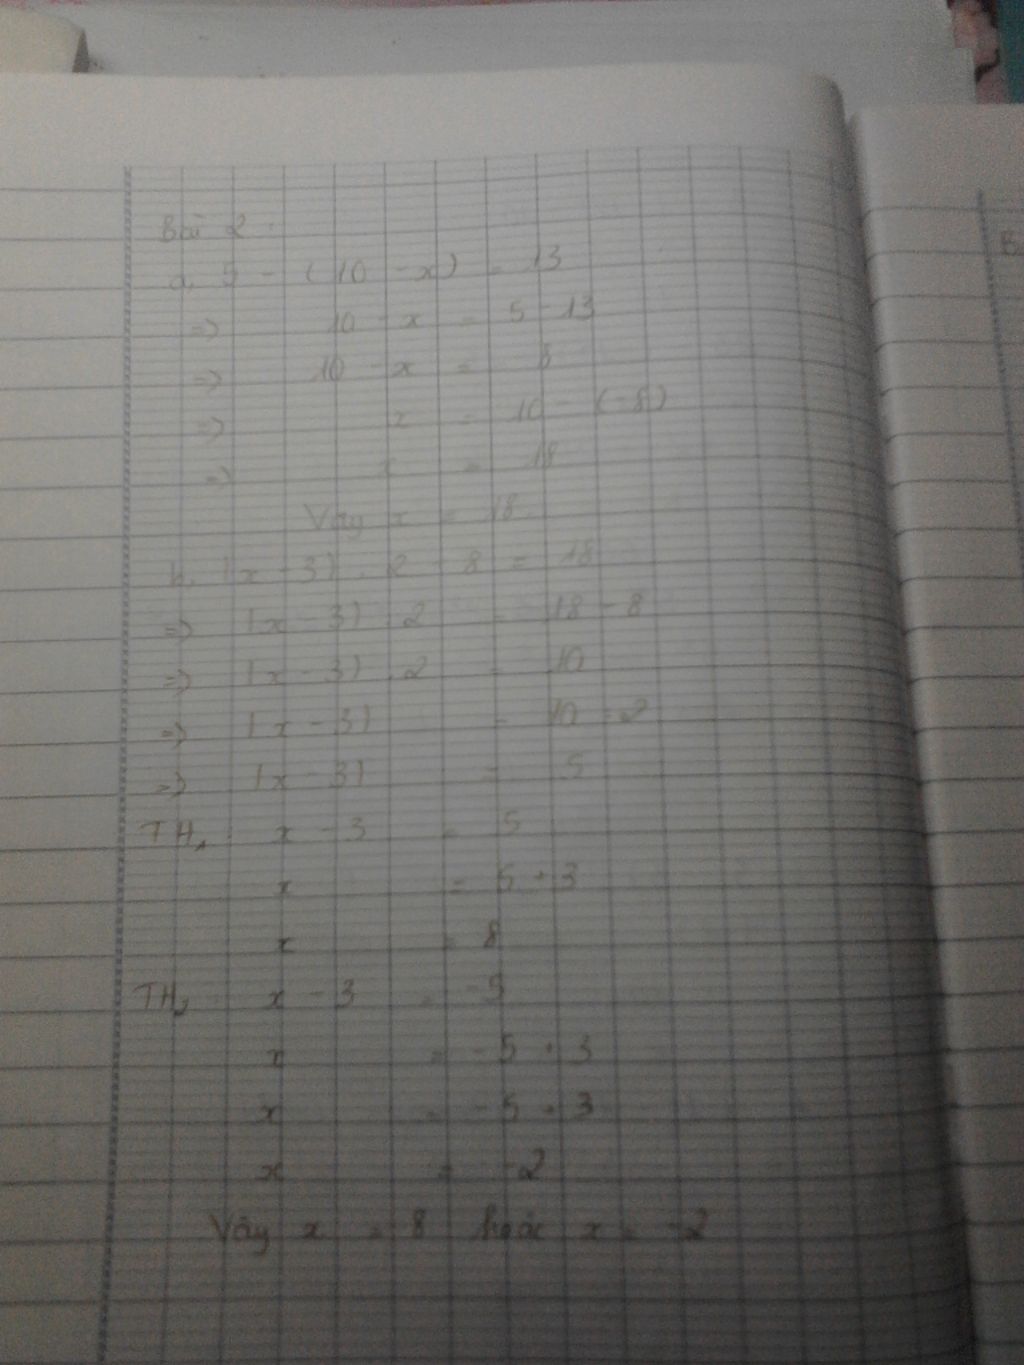 Bài 2:
a. 5 - (10 - x) = 13
=> 10 - x = 5 - 13
=> 10 - x = 8
=> x = 10 - (-8)
=> x = 18
Vậy x = 18
b. |x - 3| . 2 + 8 = 18
=> |x - 3| . 2 = 18 - 8
=> |x - 3| . 2 = 10
=> |x - 3| = 10 : 2
=> |x - 3| = 5
TH1: x - 3 = 5
x = 5 + 3
x = 8
TH2: x - 3 = -5
x = -5 + 3
x = -5 + 3
x = -2
Vậy x = 8 hoặc x = -2